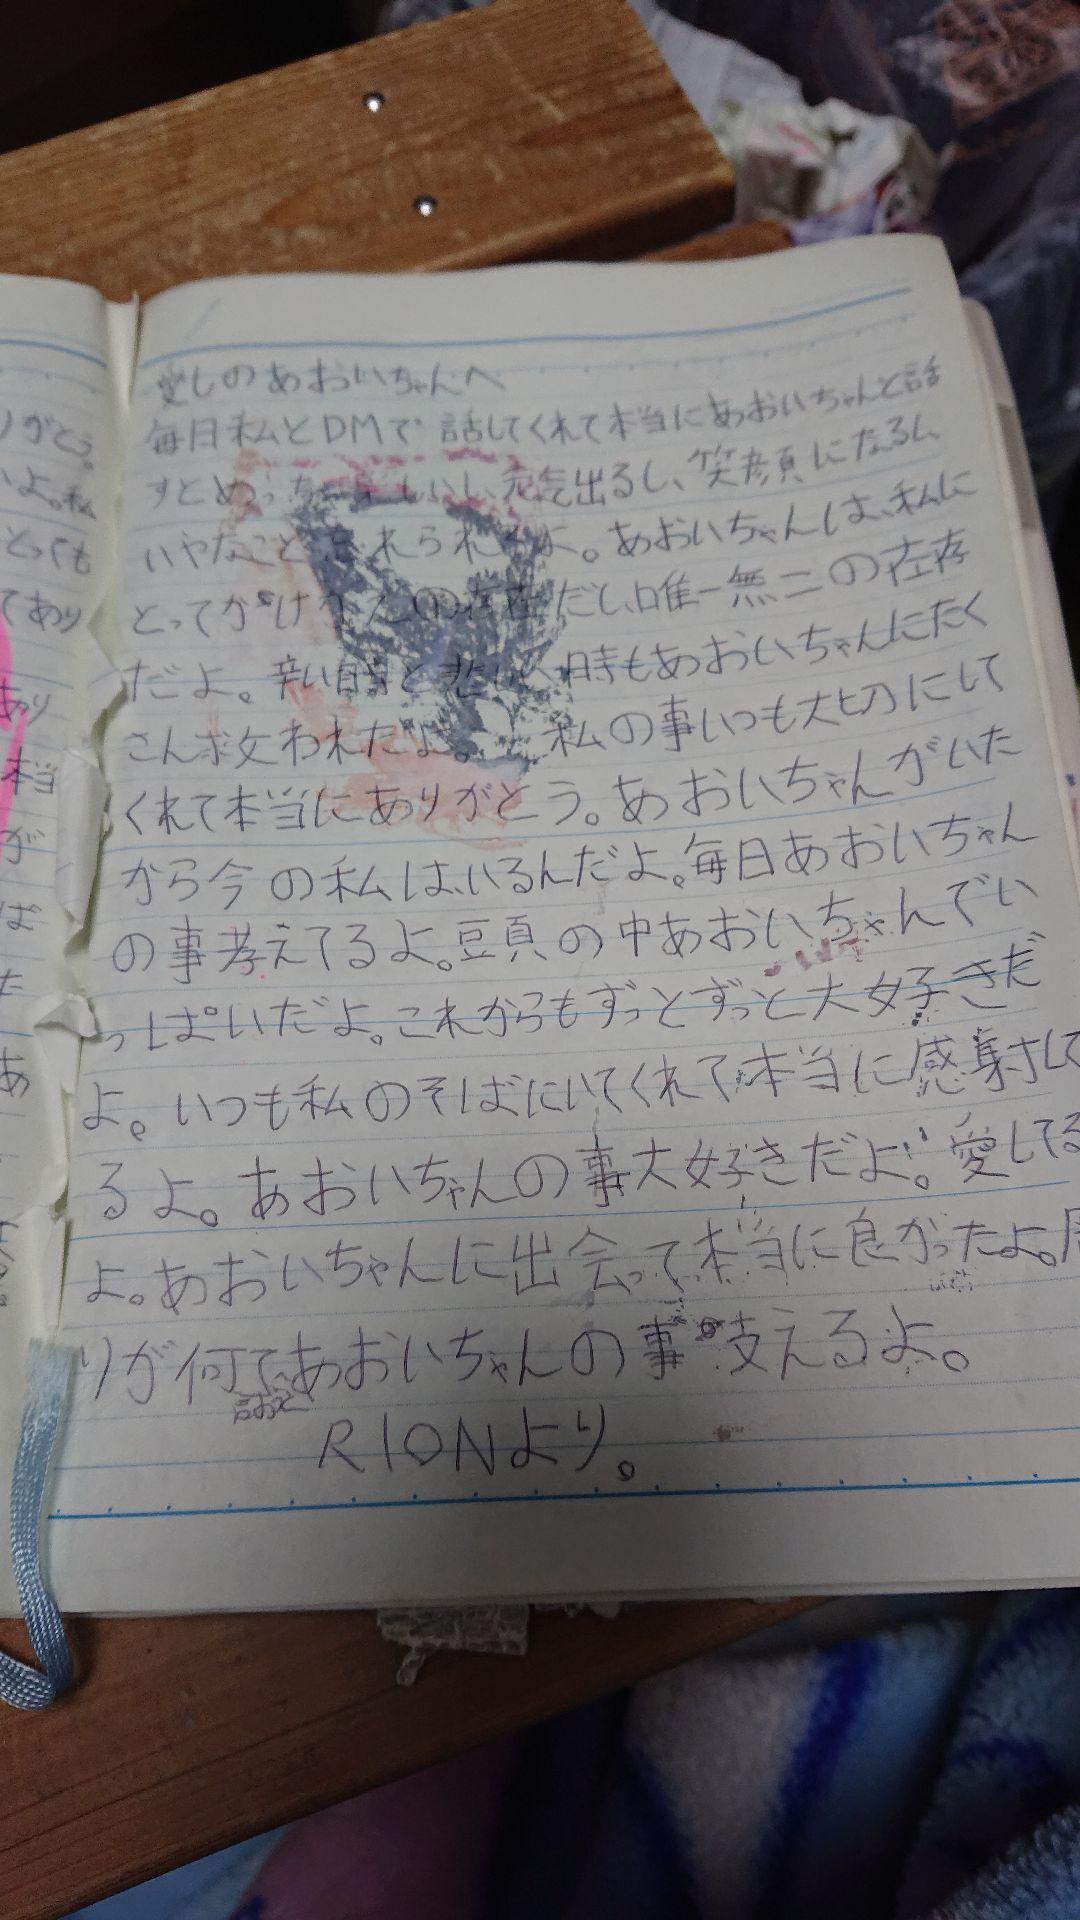 りがとう。
いよ。私
とっても
てあり
あり
本当
が
は
た
あ
愛しのあおいちゃんへ
毎日私とDMで話してくれて本当にあおいちゃんと話
すとめっちゃ楽しいし、元気出るし、笑顔になるし、
いやなこと忘れられるよ。あおいちゃんは、私に
とってかけがえの存在だし、唯一無二の在存
だよ。辛い時と悲しい時もあおいちゃんにたく
さん救われたよ。私の事いつも大切にして
くれて本当にありがとう。あおいちゃんがいた
から今の私は、いるんだよ。毎日あおいちゃん
の事考えてるよ。頭の中あおいちゃんでい
っぱいだよ。これからもずっとずっと大好きだ
よ。いつも私のそばにいてくれて本当に感射して
るよ。あおいちゃんの事大好きだよ。愛してる
よ。あおいちゃんに出会って本当に良かったよ。周
りが何てあおいちゃんの事支えるよ。
RIONより。